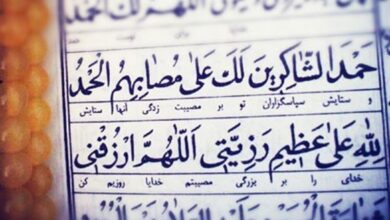 اَللّٰهُمَّ لَكَ الْحَمْدُ
خدایا
حَمْدَ الشّٰاكِرينَ لَكَ عَلىٰ مُصٰابِهِمْ اَلْحَمْدُ
ستایش سپاسگزاران تو بر مصیبت زدگی آنها ستایش
لِلّٰهِ عَلىٰ عَظيمِ رَزِيَّتي اَللّٰهُمَّ ارْزُقْني
خدای را بر بزرگی مصیبتم خدایا روزیم کن